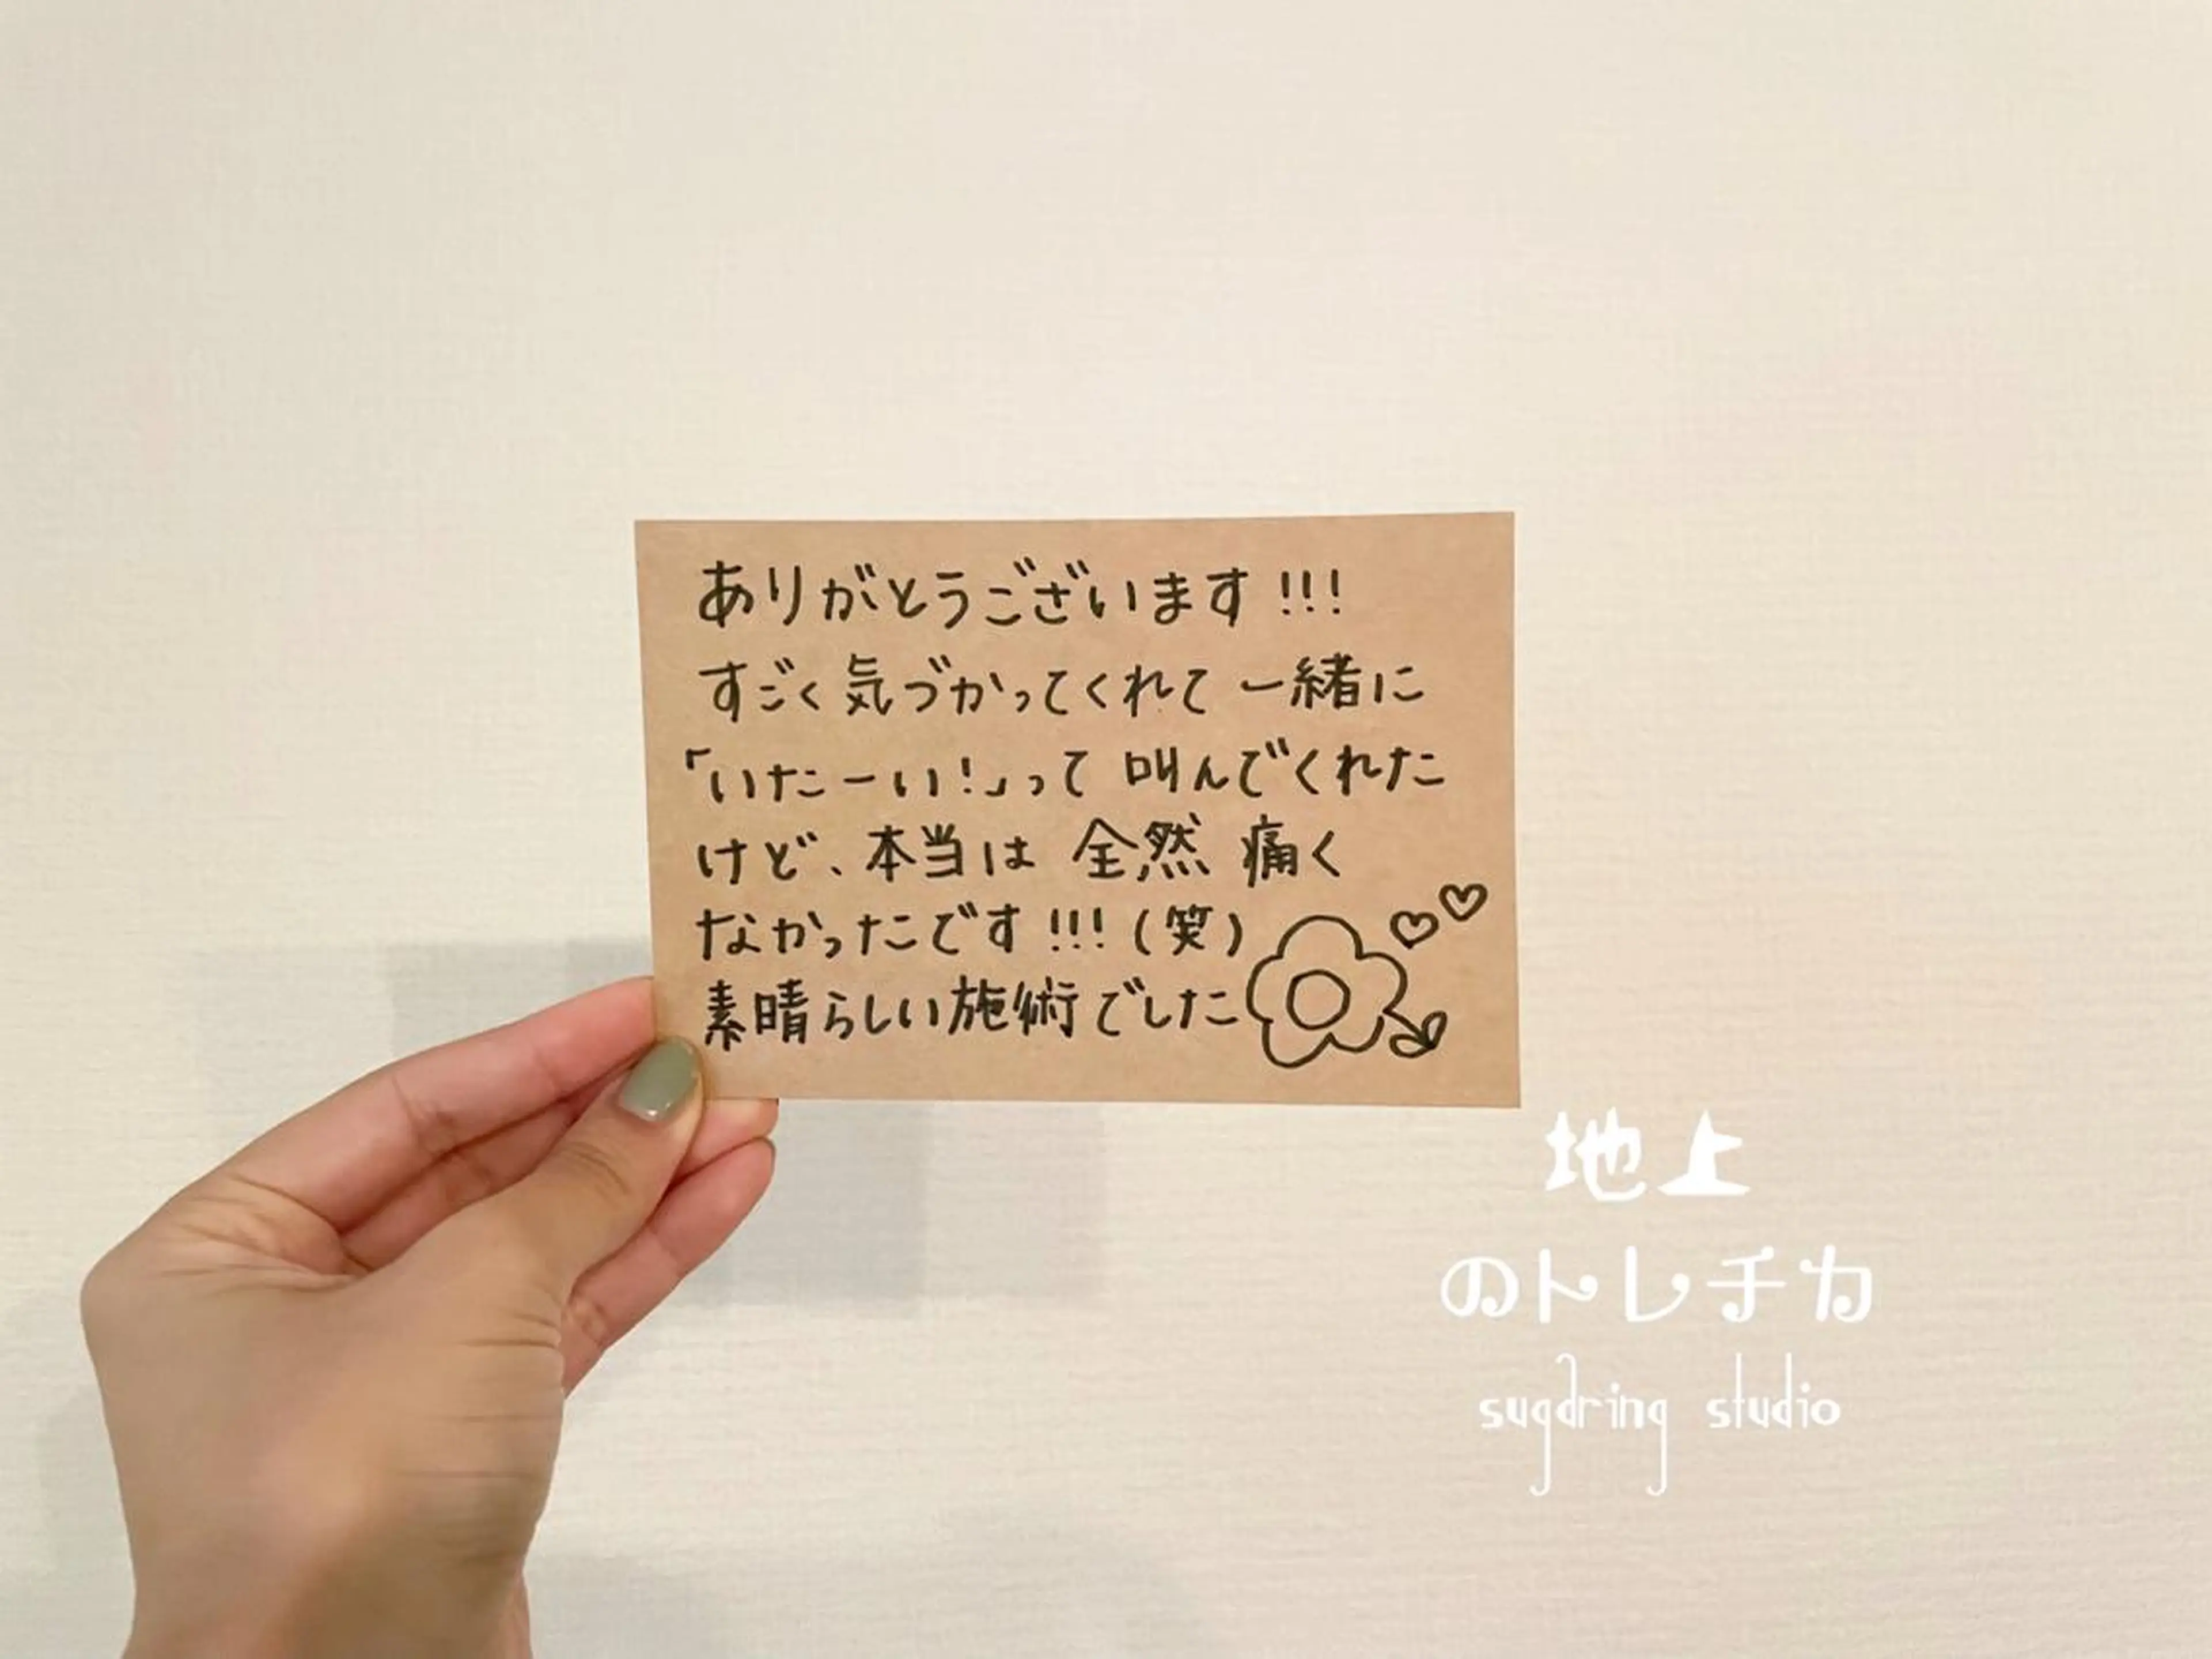 ありがとうございます!!!
すごく気づかってくれて一緒に
「いたーい!」って叫んでくれた
けど、本当は全然痛く
なかったです!!!(笑)
素晴らしい施術でした
地上
のトレチカ
sugaring studio